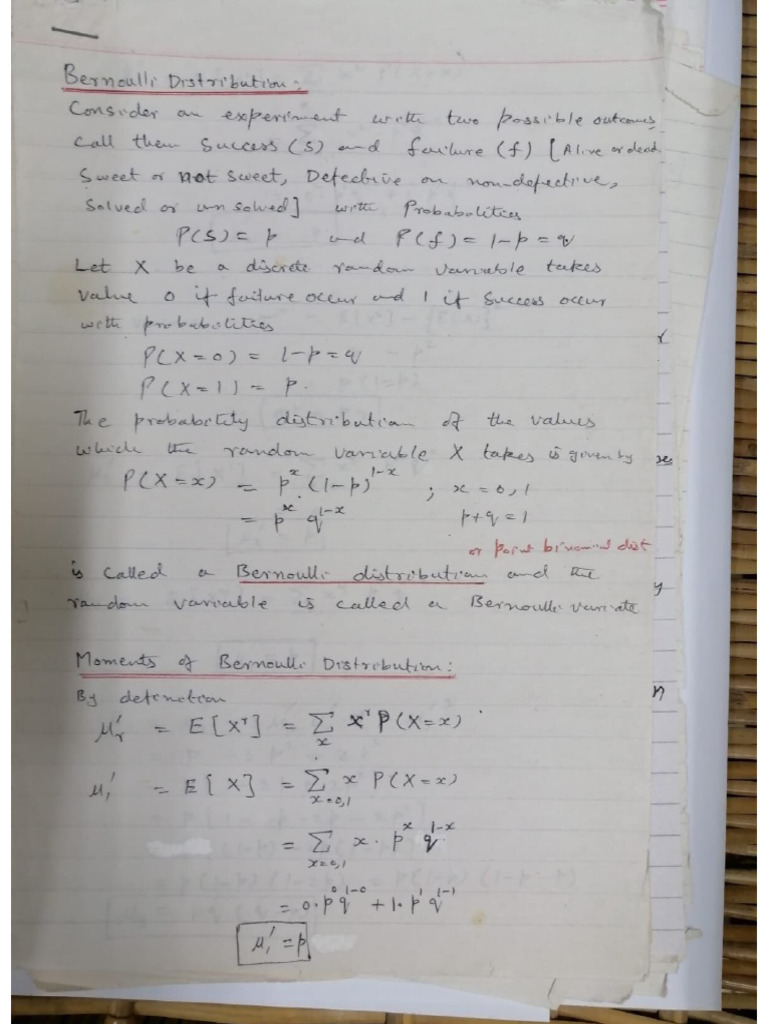 Bernoulli Distribution:
Consider an experiment with two possible outcomes,
call them Success (S) and failure (f) [Alive or dead
Sweet or not sweet, Defective or non-defective,
Solved or unsolved] with Probabilities
P(S) = p and P(f) = 1-p = q
Let X be a discrete random variable takes
value 0 if failure occur and 1 if Success occur
with probabilities
P(X=0) = 1-p = q
P(X=1) = p.
The probability distribution of the values
which the random variable X takes is given by
P(X=x) = p^x (1-p)^{1-x} ; x = 0,1
= p^x q^{1-x} p+q = 1
or point binomial dist
is called a Bernoulli distribution and the
random variable is called a Bernoulli variate
Moments of Bernoulli Distribution:
By defination
μ'_r = E[X^r] = Σ_x x^r P(X=x)
μ'_1 = E[X] = Σ_{x=0,1} x P(X=x)
= Σ_{x=0,1} x · p^x q^{1-x}
= 0·p^0 q^{1-0} + 1·p^1 q^{1-1}
μ'_1 = p